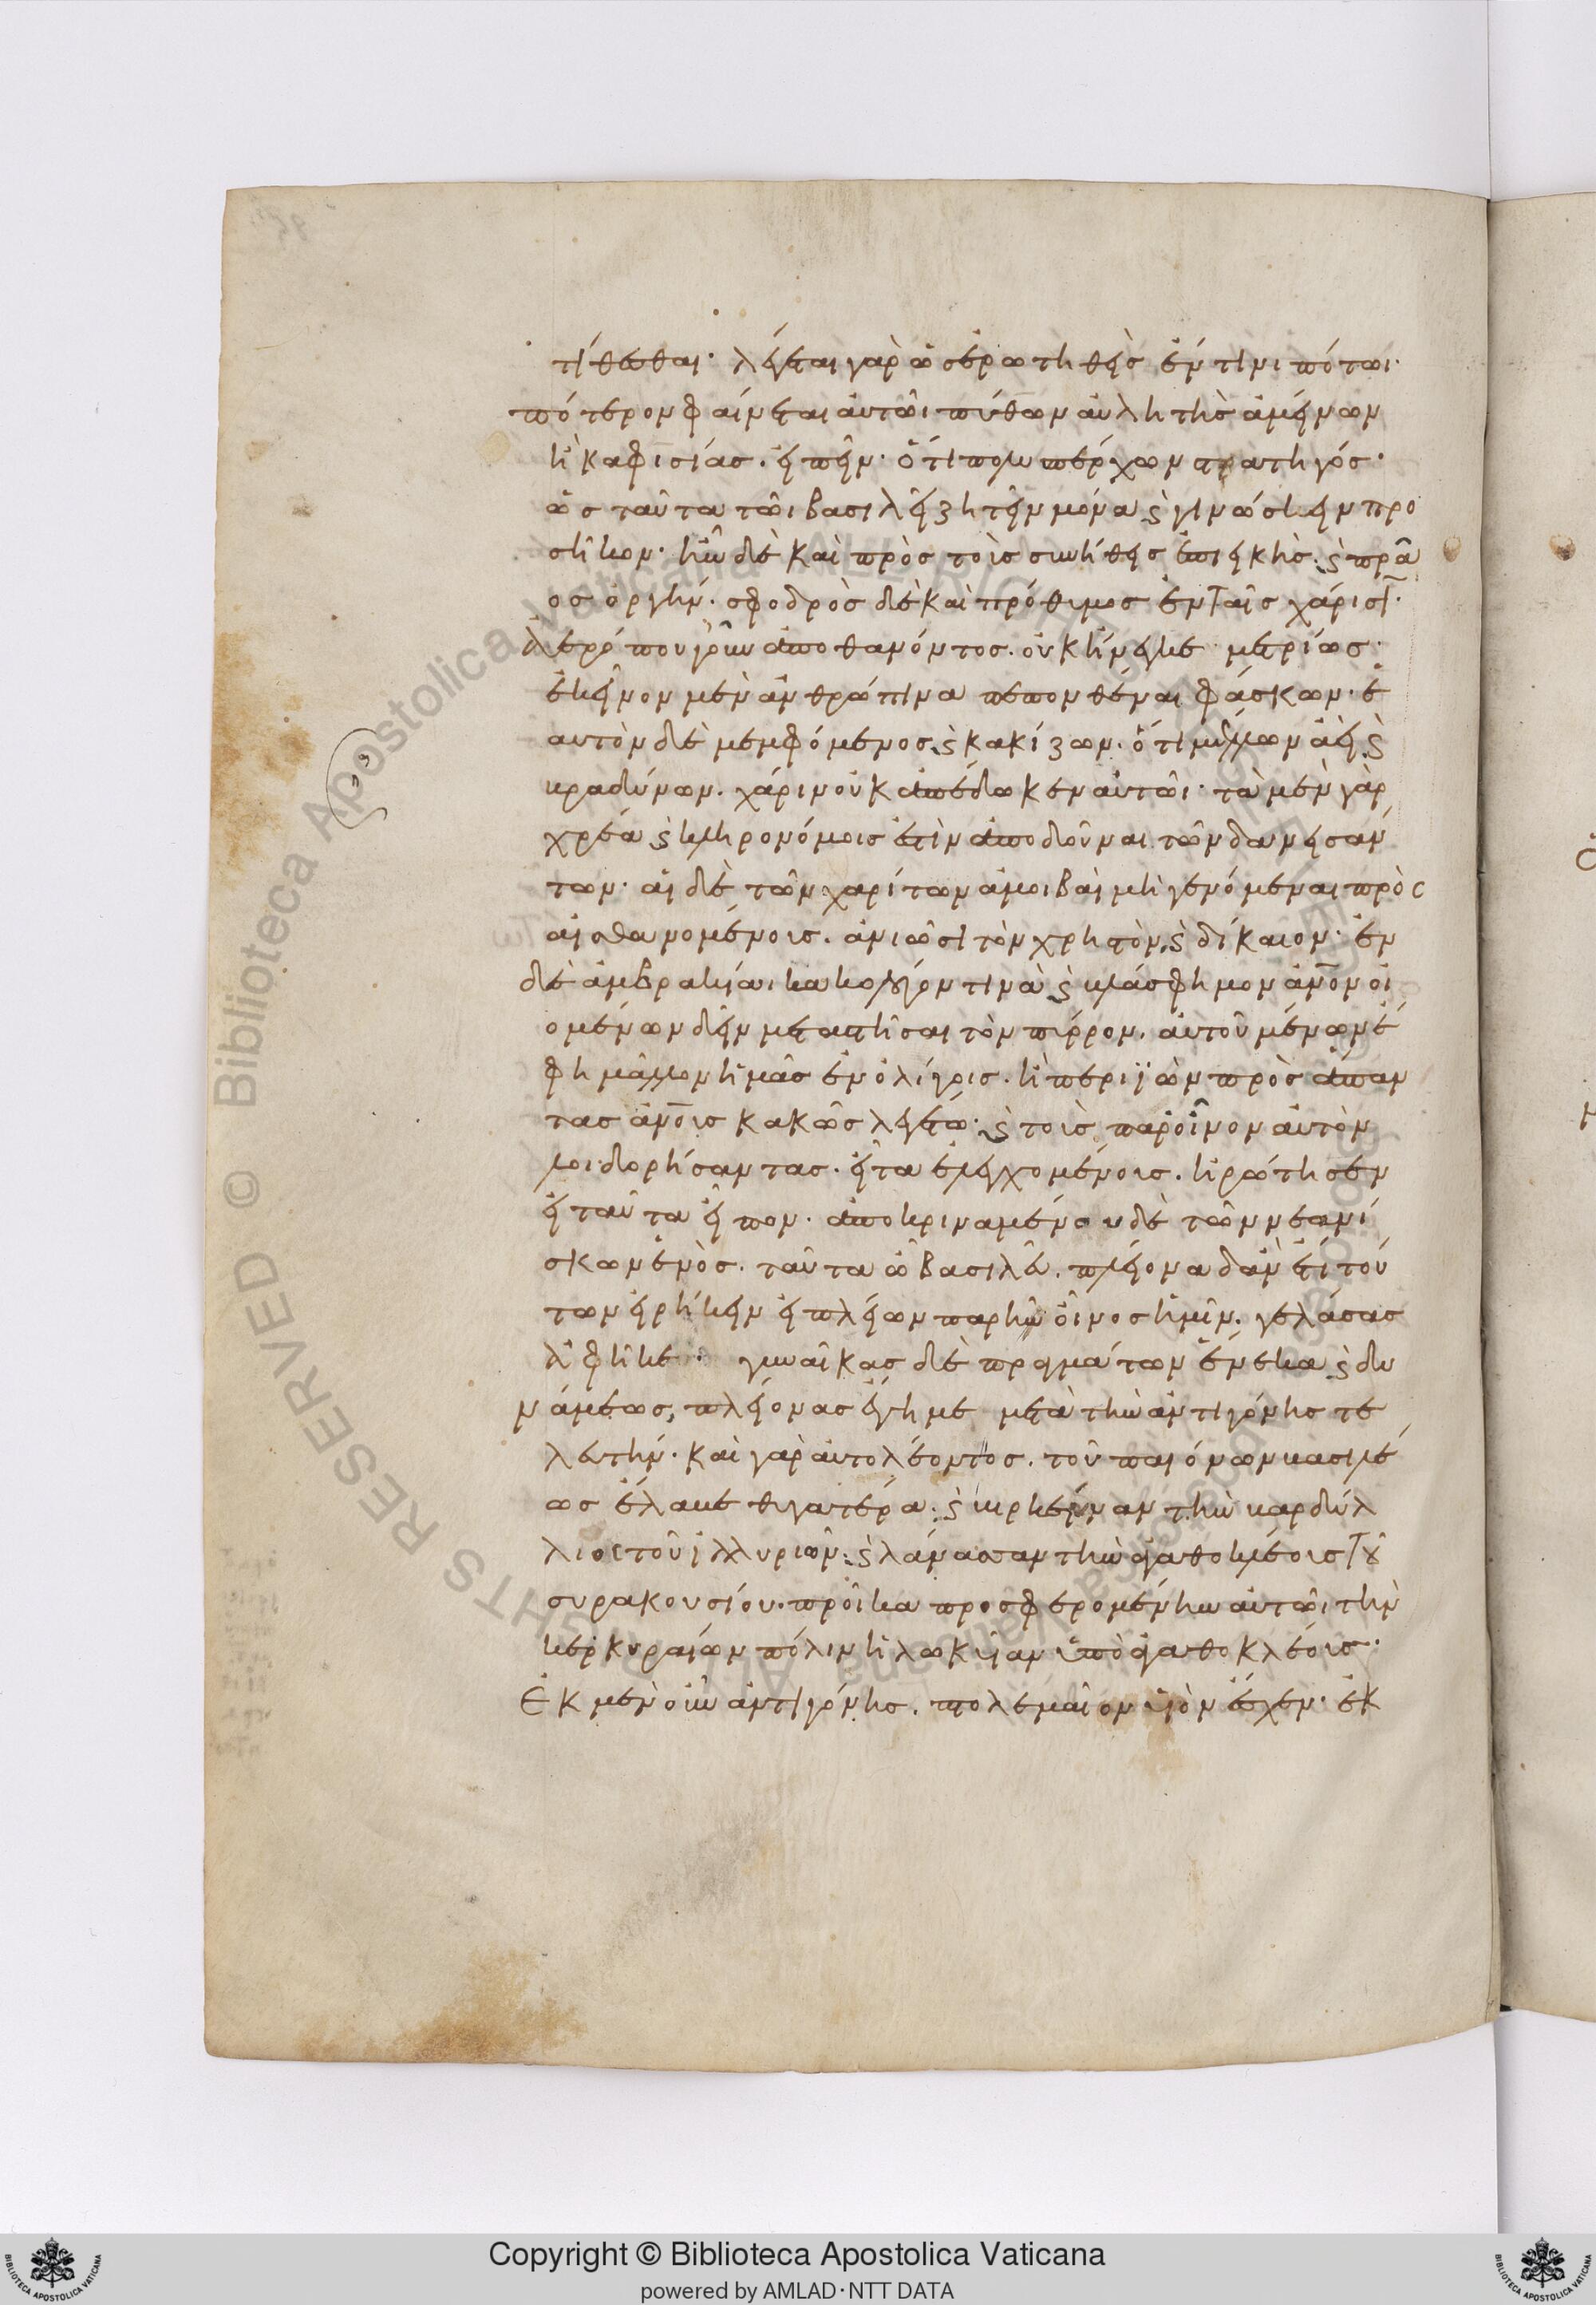 τίθεσθαι· λέγεται γὰρ ὡς ἐρωτηθεὶς ἔν τινι πότωι·
πότερον φαίνεται αὐτῶι πύθων αὐλητὴς ἀμείνων
ἢ καφισίας. εἰπεῖν· ὅτι πολυπέρχων στρατηγός·
ὡς ταῦτα τῶι βασιλεῖ ζητεῖν μόνα ϗ γινώσκειν προ
σῆκον· ἦν δὲ καὶ πρὸς τοὺς συνήθεις ἐπιεικὴς· ϗ πρᾶ
ος ὀργήν· σφοδρὸς δὲ καὶ πρόθυμος ἐν ταῖς χάρισιν·
ἀερόπου γοῦν ἀποθανόντος. οὐκ ἤνεγκε μετρίως·
ἐκεῖνον μὲν ἀνθρώπινα πεπονθέναι φάσκων· ἑ
αυτὸν δὲ μεμφόμενος ϗ κακίζων. ὅτι μέλλων ἀεὶ ϗ
βραδύνων. χάριν οὐκ ἀπέδωκεν αὐτῶι· τὰ μὲν γὰρ
χρέα ϗ κληρονόμοις ἐστὶν ἀποδοῦναι τῶν δανεισάν
των· αἱ δὲ τῶν χαρίτων ἀμοιβαὶ μὴ γενόμεναι πρὸς
αἰσθανομένους. ἀνιῶσι τὸν χρηστὸν ϗ δίκαιον· ἐν
δὲ ἀμβρακίαι κακολόγον τινὰ ϗ βλάσφημον ἄνον οἰ
ομένων δεῖν μεταστῆσαι τὸν πύρρον. αὐτοῦ μένων ἔ
φη μᾶλλον ἡμᾶς ἐν ὀλίγοις. ἢ περιϊὼν πρὸς ἅπαν
τας ἀνους κακῶς λεγέτω· ϗ τοὺς παροῖνον αὐτὸν
λοιδορήσαντας. εἶτα ἐλεγχομένους. ἠρώτησεν
εἰ ταῦτα εἶπον. ἀποκριναμένου δὲ τῶν νεανί
σκων ἑνὸς. ταῦτα ὦ βασιλεῦ. πλείονα δ' ἂν ἔτι τού
των εἰρήκειν εἰ πλείων παρῆν οἶνος ἡμῖν. γελάσας
ἀφῆκε· γυναῖκας δὲ πραγμάτων ἕνεκα ϗ δυ
νάμεως, πλείονας ἔγημε μετὰ τὴν ἀντιγόνης τε
λευτήν· καὶ γὰρ αὐτολέοντος. τοῦ παιόνων βασιλέ
ως ἔλαβε θυγατέρα· ϗ βιρκένναν τὴν βαρδύλ
λιος τοῦ ἰλλυριῶν· ϗ λάνασσαν τὴν ἀγαθοκλέους τοῦ
συρακουσίου. προῖκα προσφερομένην αὐτῶι τὴν
κερκυραίων πόλιν ἡλωκυῖαν ὑπὸ ἀγαθοκλέους·
Ἐκ μὲν οὖν ἀντιγόνης. πτολεμαῖον υἱὸν ἔσχεν· ἐκ
Copyright © Biblioteca Apostolica Vaticana
powered by AMLAD·NTT DATA